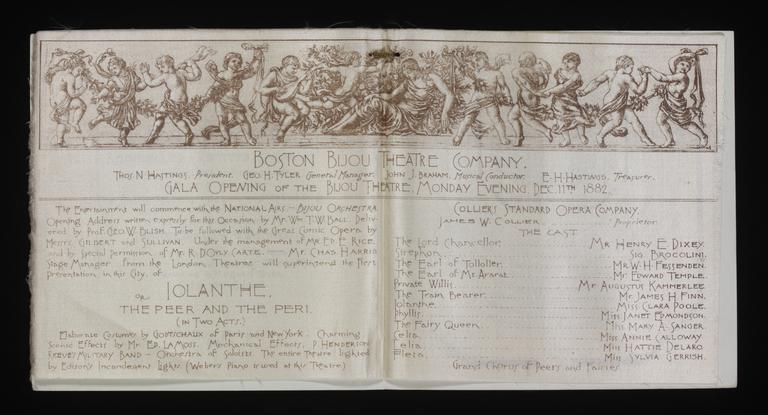 BOSTON BIJOU THEATRE COMPANY.
THOS. N. HASTINGS. President. GEO. H. TYLER General Manager. JOHN J. BRAHAM, Musical Conductor. E. H. HASTINGS, Treasurer.
GALA OPENING OF THE BIJOU THEATRE, MONDAY EVENING, DEC. 11TH 1882.
The Entertainment will commence with the NATIONAL AIRS. — BIJOU ORCHESTRA.
Opening Address written expressly for this Occasion by Mr. Wm. T. W. BALL. Deliv-
ered by Prof. GEO. W. BLISH. To be followed with the Great Comic Opera by
Messrs. GILBERT and SULLIVAN. Under the management of MR. ED. E. RICE.
and by Special Permission of Mr. R. D'OYLY CARTE. — Mr. CHAS HARRIS
Stage Manager from the London Theatres will superintend the First
Presentation in this City, of
OR IOLANTHE.
THE PEER AND THE PERI.
(IN TWO ACTS.)
Elaborate Costumes by GODTSCHAUX of Paris and New York. Charming
Scenic Effects by Mr. ED. LAMOSS. Mechanical Effects, P. HENDERSON
REEVES MILITARY BAND — Orchestra of Soloists. The entire Theatre lighted
by Edison's Incandescent Lights. (Webers Piano is used at this Theatre.)
COLLIER'S STANDARD OPERA COMPANY.
JAMES W. COLLIER. Proprietor.
THE CAST
The Lord Chancellor. MR HENRY E. DIXEY.
Strephon. SIG. BROCOLINI.
The Earl of Tolloller. MR. W. H. FESSENDEN.
The Earl of Mt. Ararat. MR EDWARD TEMPLE.
Private Willis. MR AUGUSTUS KAMMERLEE.
The Train Bearer. MR. JAMES H. FINN.
Iolanthe. MISS CLARA POOLE.
Phyllis. MISS JANET EDMONDSON.
The Fairy Queen. MISS MARY A. SANGER.
Celia. MISS ANNIE CALLOWAY.
Leila. MISS HATTIE DELARO.
Fleta. MISS SYLVIA GERRISH.
Grand Chorus of Peers and Fairies